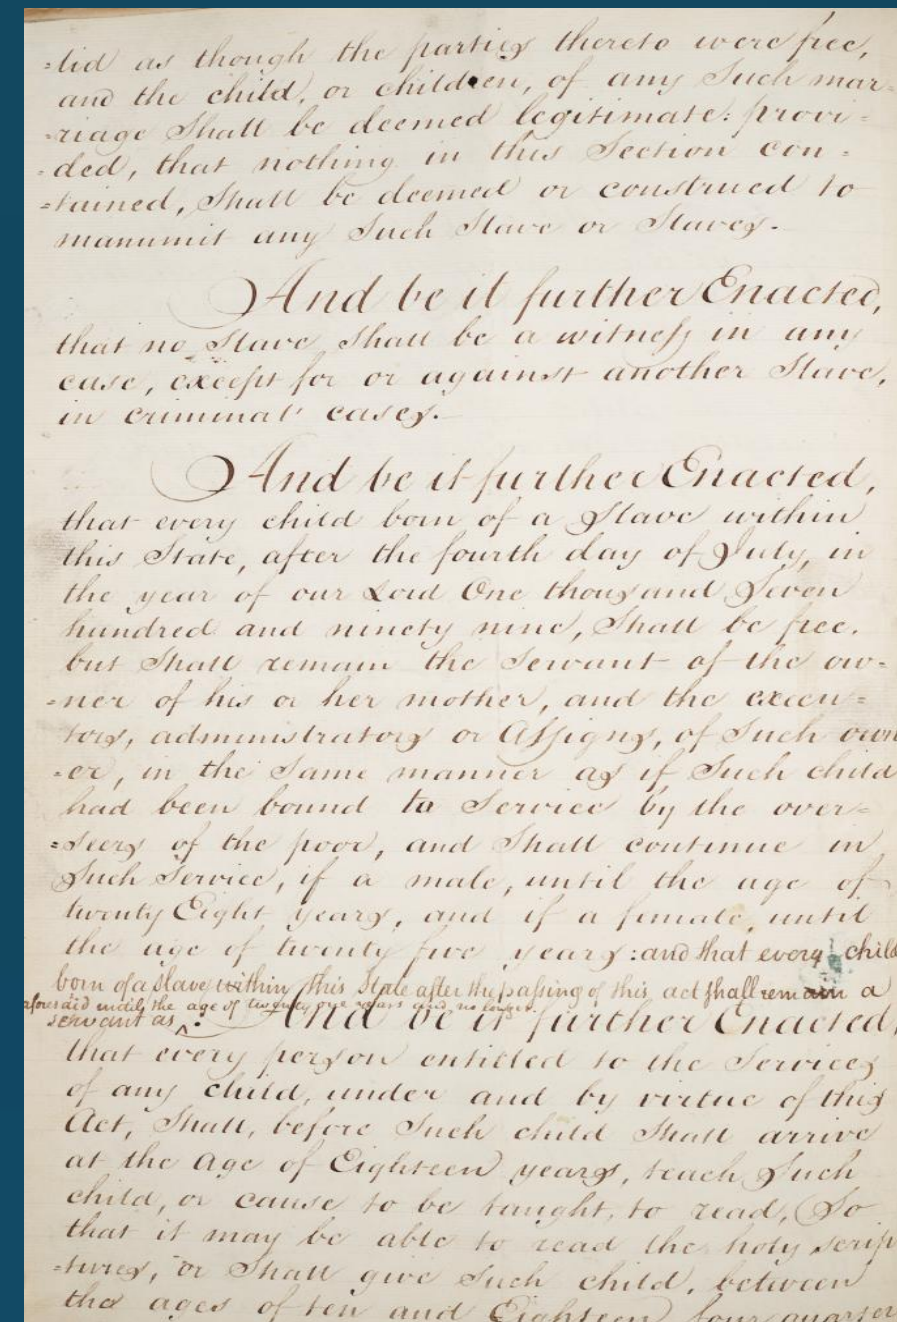 =lid as though the parties thereto were free,
and the child, or children, of any Such mar=
=riage Shall be deemed legitimate: provi=
=ded, that nothing in this Section con=
=tained, Shall be deemed or construed to
manumit any Such Slave or Slaves.
And be it further Enacted,
that no Slave Shall be a witness in any
case, except for or against another Slave,
in criminal cases.
And be it further Enacted,
that every child born of a Slave within
this State, after the fourth day of July, in
the year of our Lord One thousand Seven
hundred and ninety nine, Shall be free.
but Shall remain the Servant of the ow=
=ner of his or her mother, and the execu=
tors, administrators or Assigns, of Such own
=er, in the Same manner as if Such child
had been bound to Service by the over=
=seers of the poor, and Shall continue in
Such Service, if a male, until the age of
twenty Eight years, and if a female, until
the age of twenty five years: and that every child
born of a Slave within this State after the passing of this act shall remain a
servant as aforesaid until the age of twenty one years and no longer.
And be it further Enacted,
that every person entitled to the Services
of any child, under and by virtue of this
Act, Shall, before Such child Shall arrive
at the Age of Eighteen years, teach Such
child, or cause to be taught, to read, So
that it may be able to read the holy scrip
=tures, or Shall give Such child, between
the ages of ten and Eighteen four quarter